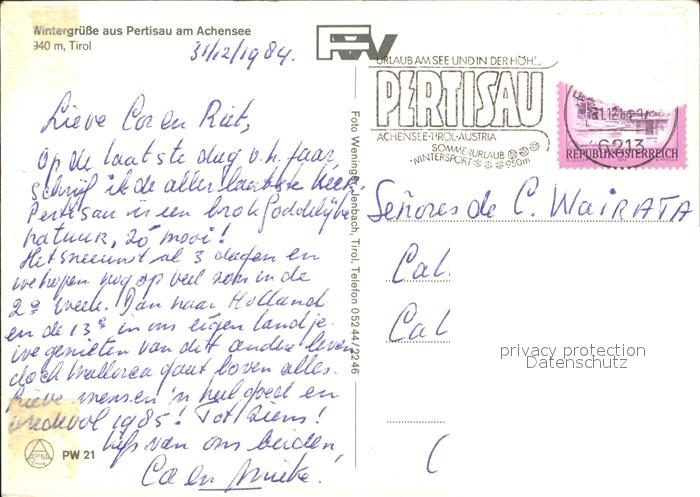 Wintergrüße aus Pertisau am Achensee
940 m, Tirol
31/12/1984.
Lieve Cor en Riet,
op de laatste dag v.h. jaar,
schrijf ik de aller laatste keer.
Pertisau is een brok Goddelijke
natuur, zó mooi!
Het sneeuwt al 3 dagen en
we hopen nog op veel zon in de
2e week. Dan naar Holland
en de 13e in ons eigen landje.
we genieten van dit andere leven
doch Mallorca gaat boven alles.
Lieve mensen 'n heel goed en
vredevol 1985! Tot ziens!
liefs van ons beiden,
Co en Mieke.
ALPINA
PW 21
Foto Weninger, Jenbach, Tirol, Telefon 05244/2246
URLAUB AM SEE UND IN DER HÖH'..
PERTISAU
ACHENSEE-TIROL-AUSTRIA
SOMMERURLAUB
WINTERSPORT 950m
6213
REPUBLIK ÖSTERREICH
Señores de C. WAIRATA
Cal
Cal
privacy protection
Datenschutz